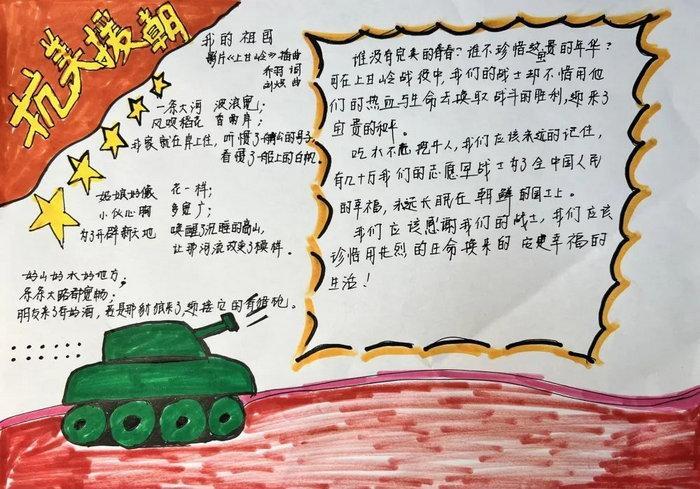 抗美援朝
我的祖国
影片《上甘岭》插曲
乔羽 词
刘炽 曲
一条大河 波浪宽;
风吹稻花 香两岸;
我家就在岸上住,听惯了艄公的号子
看惯了船上的白帆。
姑娘好像 花一样;
小伙心胸 多宽广;
为了开辟新天地 唤醒了沉睡的高山,
让那河流改变了模样。
好山好水好地方;
条条大路都宽畅;
朋友来了有好酒,若是那豺狼来了,迎接它的有猎枪。
谁没有完美的青春?谁不珍惜宝贵的年华?
可在上甘岭战役中,我们的战士却不惜用他
们的热血与生命去换取战斗的胜利,迎来了
宝贵的和平。
吃水不忘挖井人,我们应该永远的记住,
有几十万我们的志愿军战士为了全中国人民
的幸福,永远长眠在朝鲜的国土上。
我们应该感谢我们的战士,我们应该
珍惜用先烈的生命换来的 安定幸福的
生活!